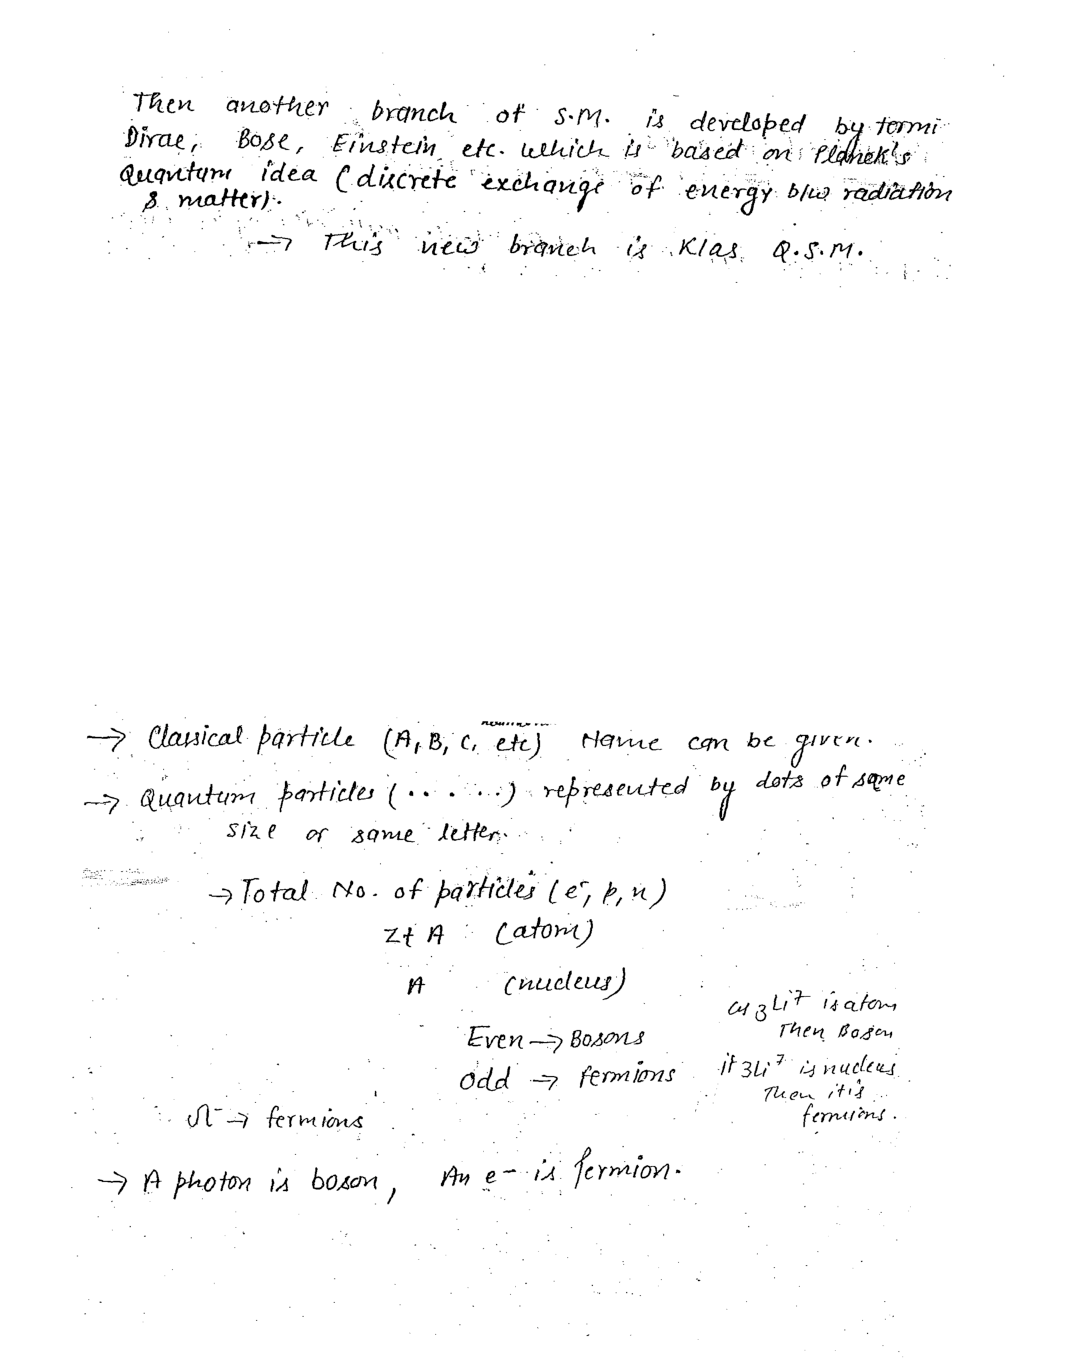 Then another branch of S.M. is developed by Fermi
Dirac, Bose, Einstein etc. which is based on Planck's
Quantum idea (discrete exchange of energy b/w radiation
& matter).
→ This new branch is K/as Q.S.M.
→ Classical particle (A, B, C, etc) Name can be given.
→ Quantum particles (......) represented by dots of same
size or same letter.
→ Total No. of particles (e-, p, n)
Z+A (atom)
A (nucleus)
Even → Bosons
Odd → fermions
3Li7 is atom
Then Boson
if 3Li7 is nucleus
Then it is
fermions.
→ fermions
→ A photon is boson, An e- is fermion.